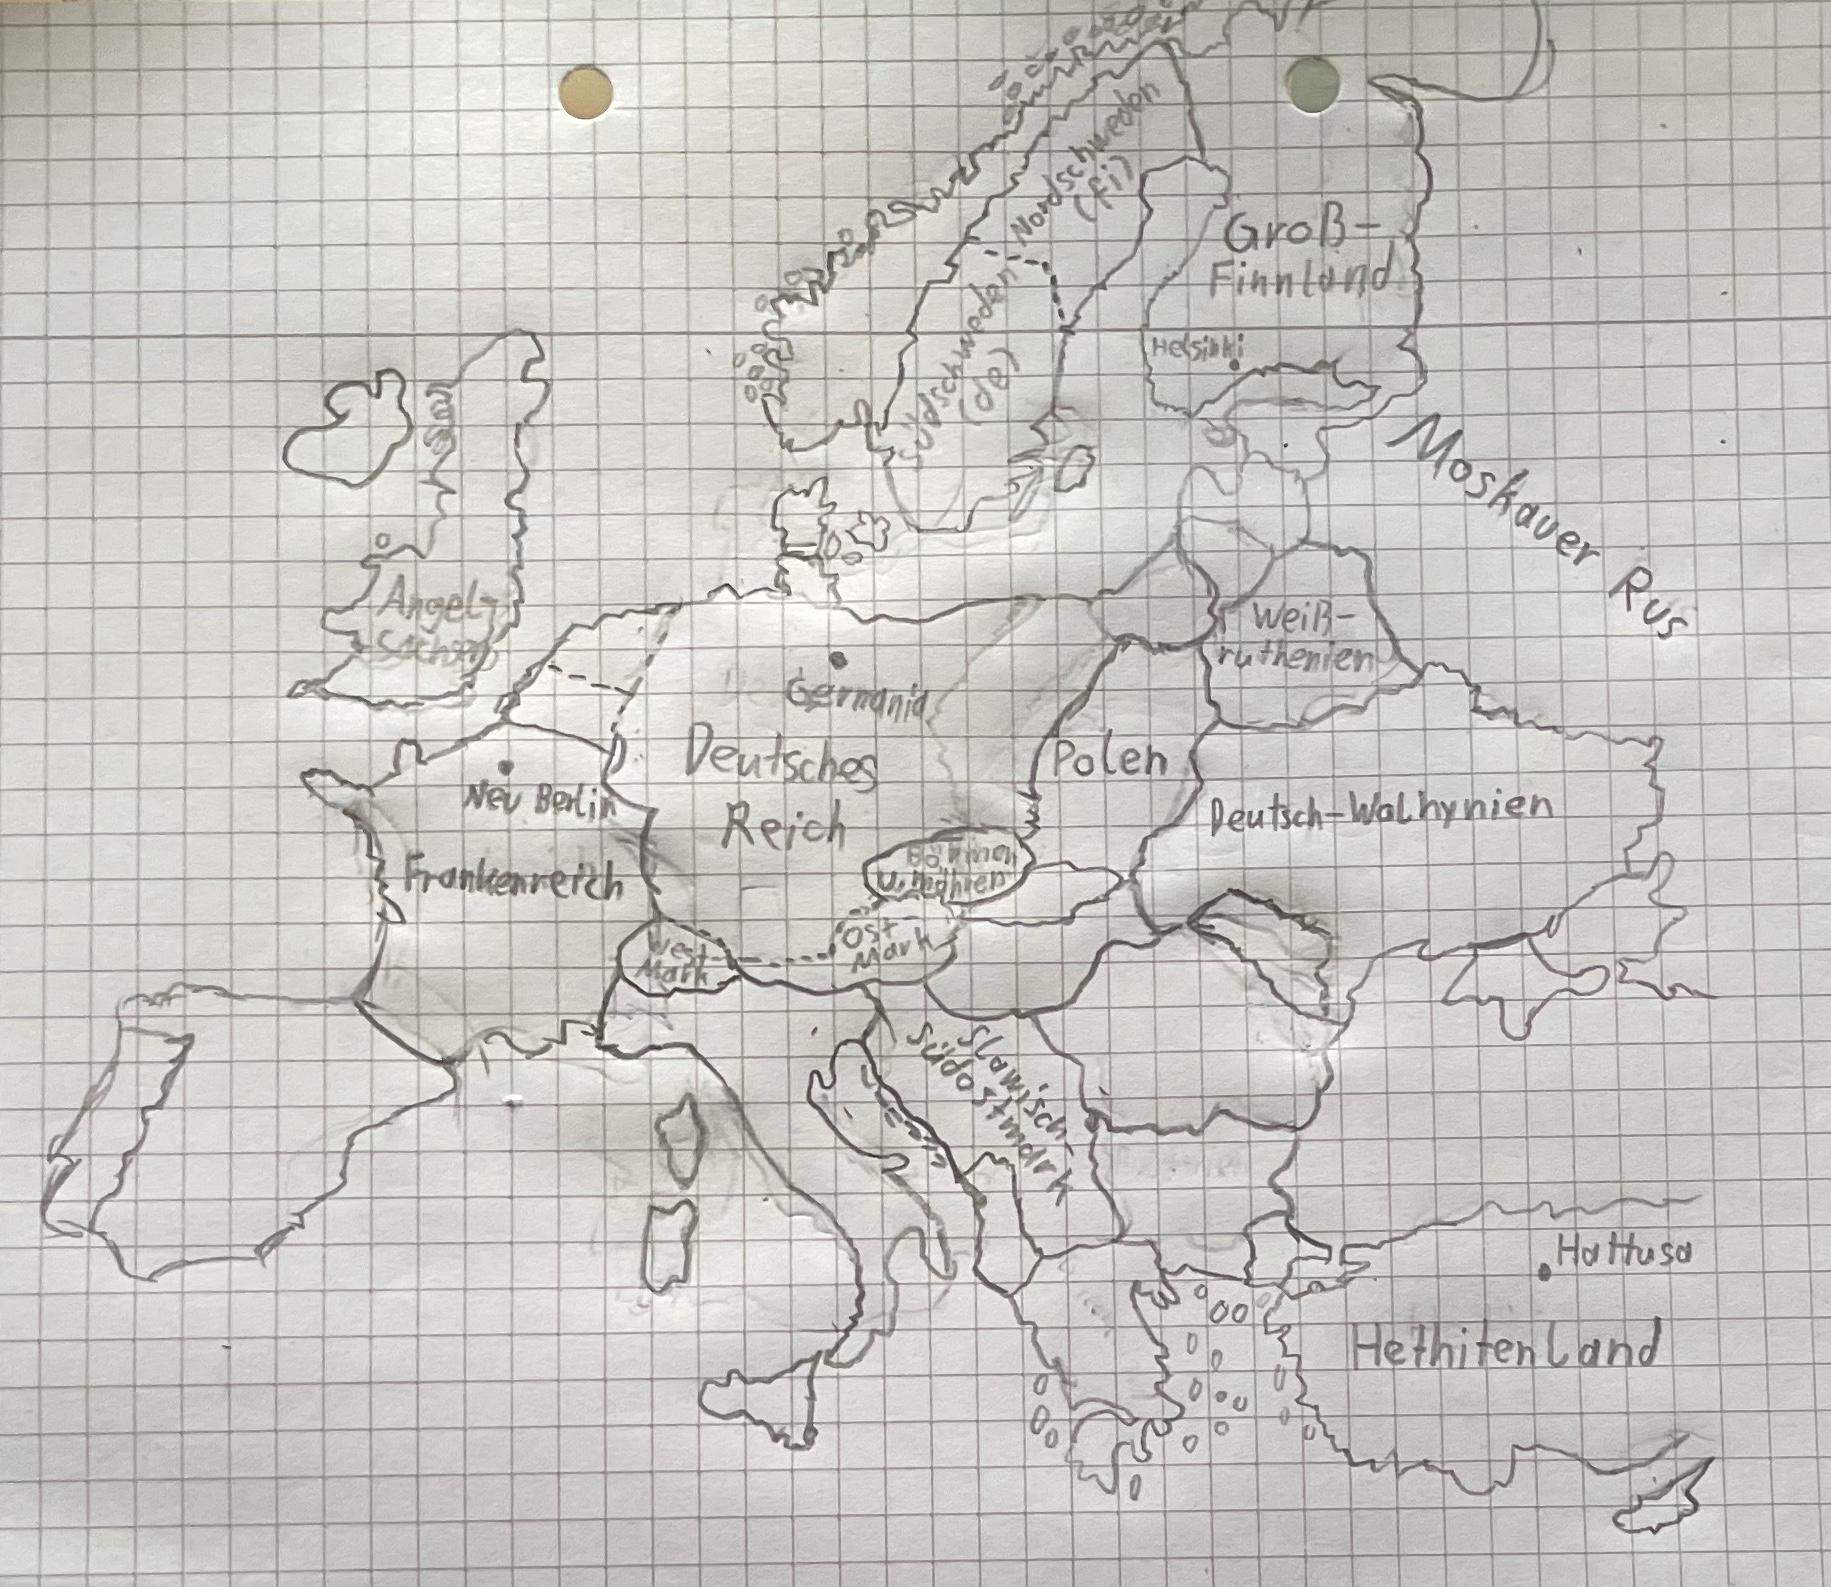 Nordschweden
(fi)
Groß-
Finnland
Südschweden
(de)
Helsinki
Moskauer Rus
Angel-
sachsen
Weiß-
ruthenien
Germania
Deutsches
Reich
Polen
Neu Berlin
Deutsch-Wolhynien
Frankenreich
Böhmen
u. Mähren
West
Mark
Ost
Mark
Slawisch-
Südostmark
Hattusa
Hethitenland